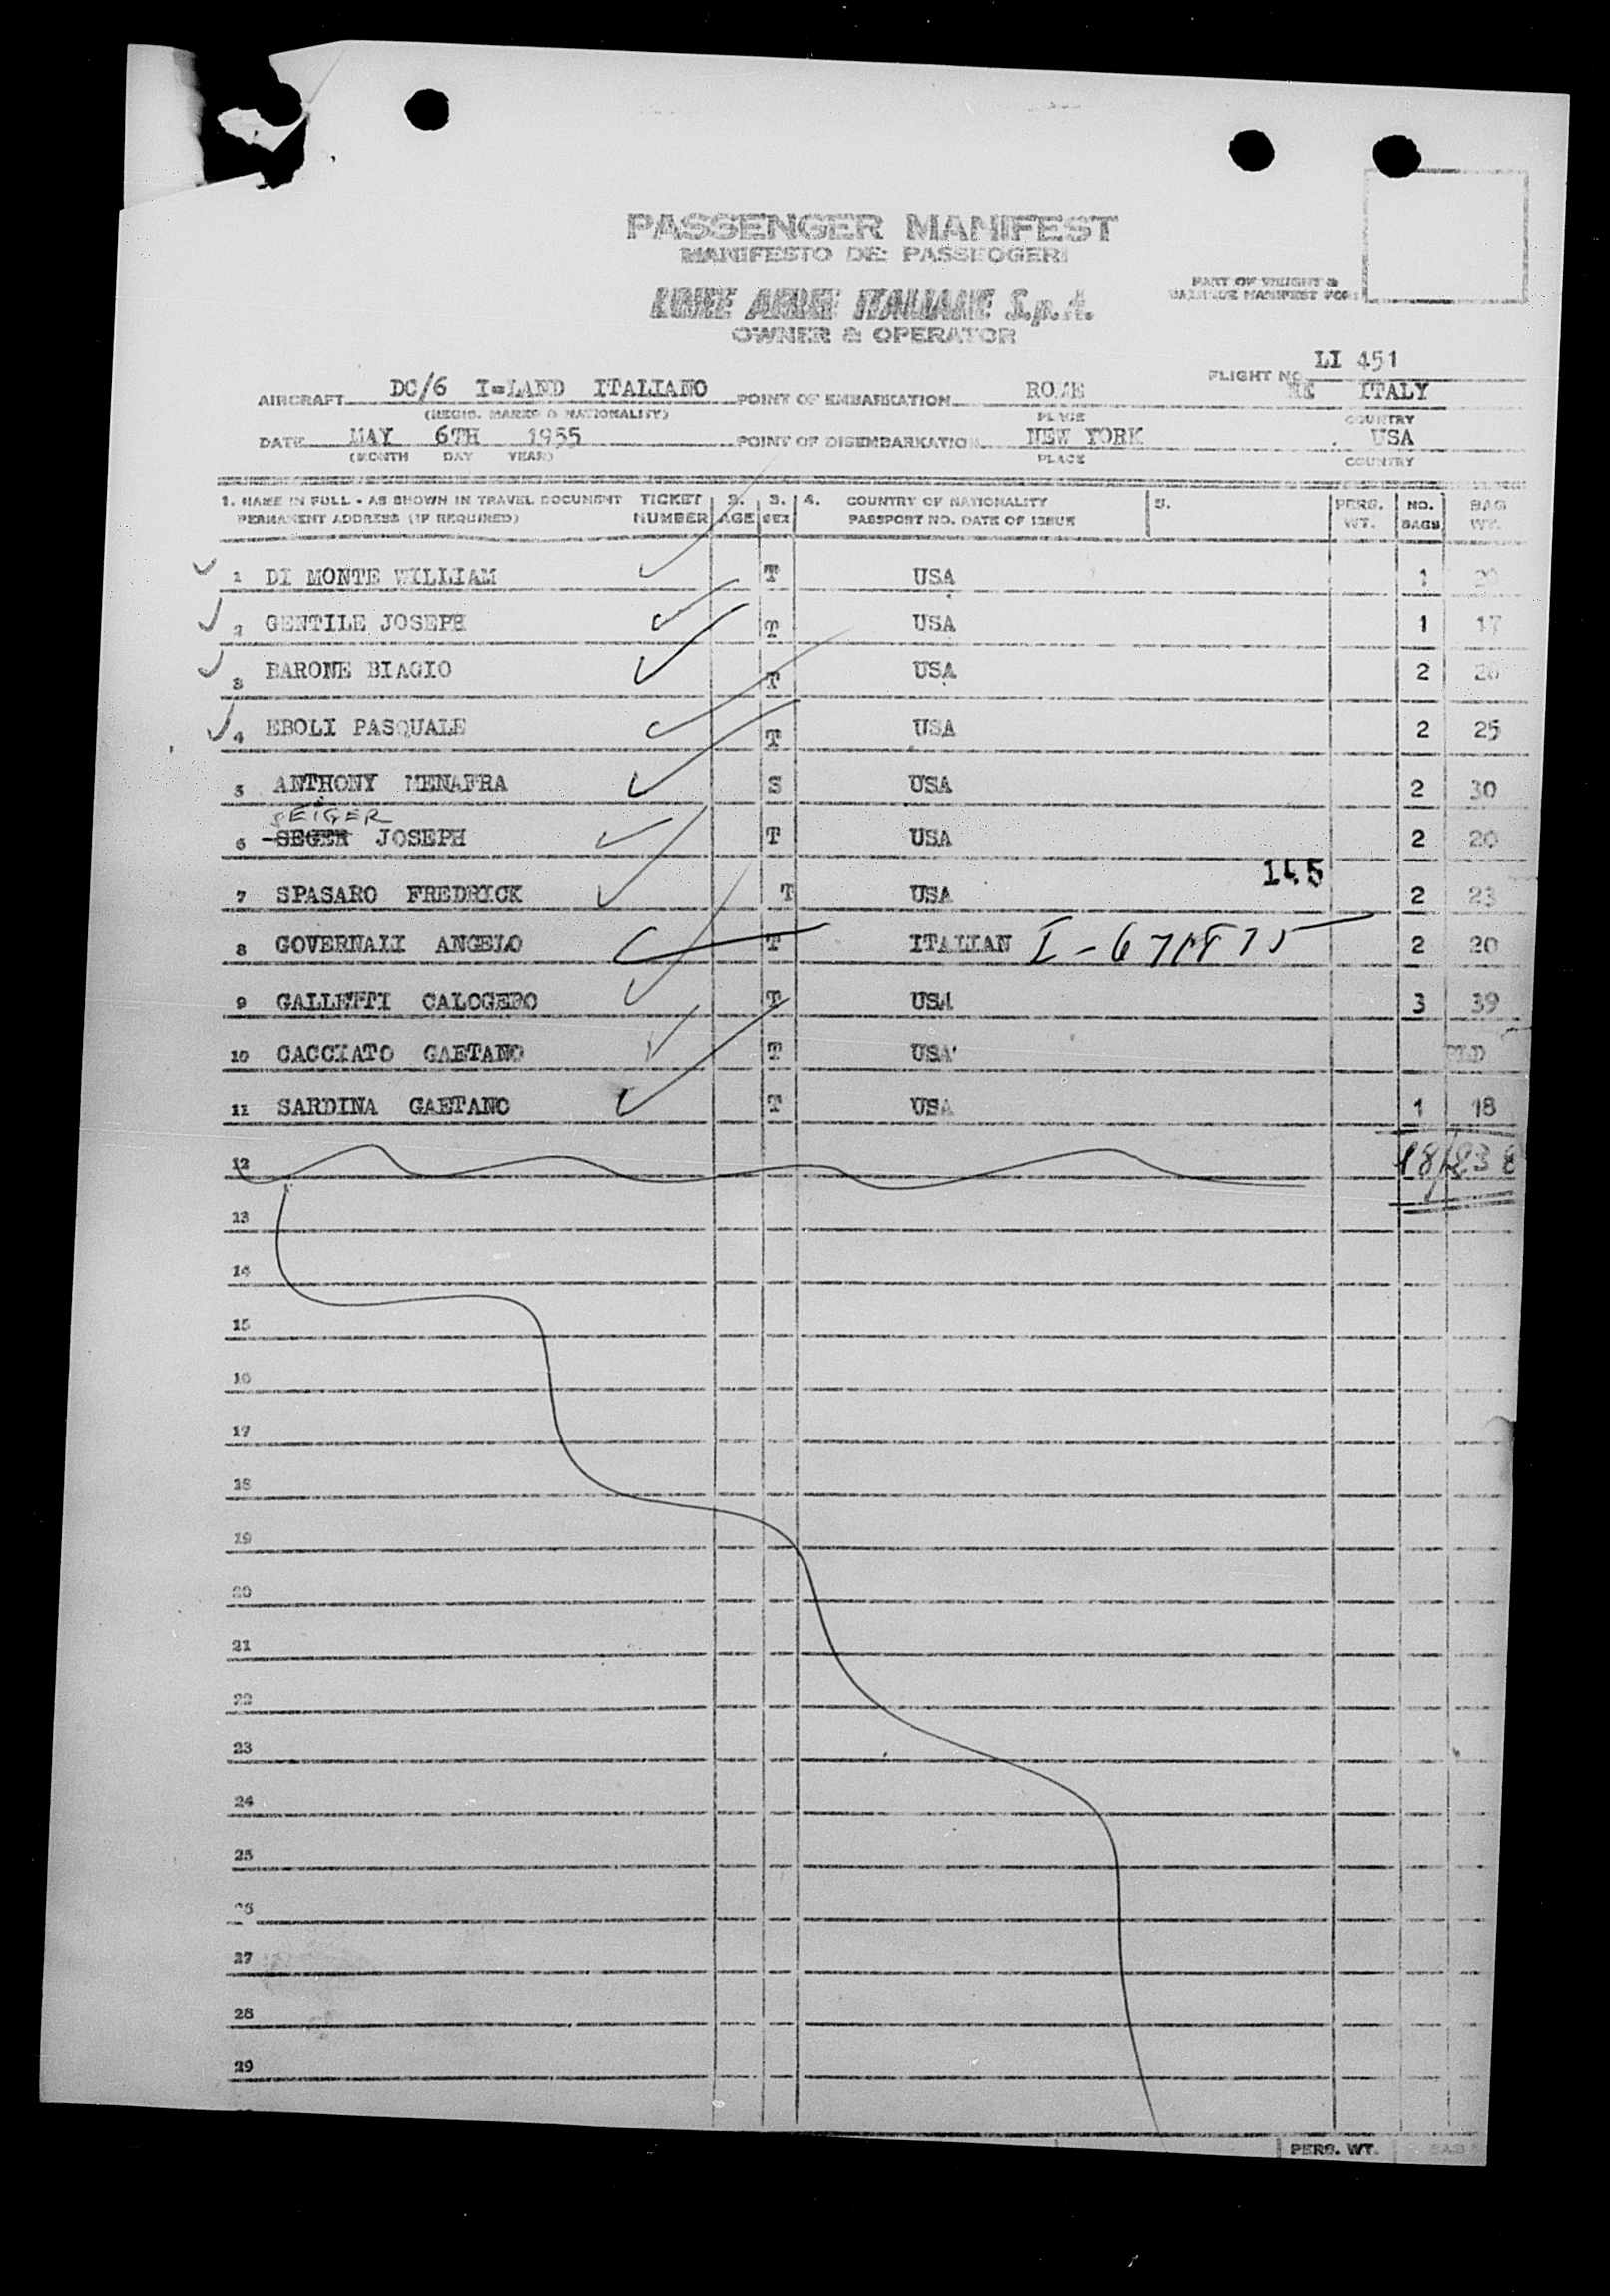 PASSENGER MANIFEST
MANIFESTO DEI PASSEGGERI
LINEE AEREE ITALIANE S.p.A.
OWNER & OPERATOR
PART OF WEIGHT &
BALANCE MANIFEST FOR:
FLIGHT NO. LI 451
AIRCRAFT DC/6 I=LAND ITALIANO POINT OF EMBARKATION ROME ITALY
(REGIS. MARKS & NATIONALITY) PLACE COUNTRY
DATE MAY 6TH 1955 POINT OF DISEMBARKATION NEW YORK USA
(MONTH DAY YEAR) PLACE COUNTRY
1. NAME IN FULL - AS SHOWN IN TRAVEL DOCUMENT TICKET 2. 3. 4. COUNTRY OF NATIONALITY 5. PERS. NO. BAG
PERMANENT ADDRESS (IF REQUIRED) NUMBER AGE SEX PASSPORT NO. DATE OF ISSUE WT. BAGS WT.
1 DI MONTE WILLIAM T USA 1
2 GENTILE JOSEPH T USA 1 17
3 BARONE BIAGIO T USA 2
4 EBOLI PASQUALE T USA 2 25
5 ANTHONY MENAFRA S USA 2 30
SEIGER
6 SEGER JOSEPH T USA 2 20
7 SPASARO FREDRICK T USA 2 23
8 GOVERNALI ANGELO T ITALIAN 2 20
9 GALLETTI CALOGERO T USA 3 39
10 CACCIATO GAETANO T USA
11 SARDINA GAETANO T USA 1 18
12 18/238
13
14
15
16
17
18
19
20
21
22
23
24
25
26
27
28
29
PERS. WT.